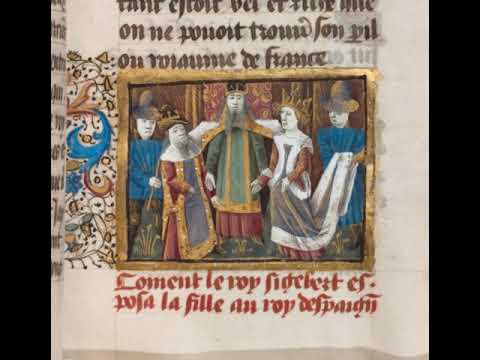 tant estoit bel et riche que
on ne pouoit trouuer son pil
ou royaume de france
Coment le roy sigebert es-
posa la fille au roy despaigñ